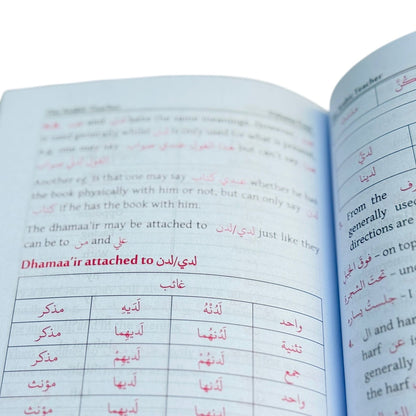 The Arabic Teacher
have the same meanings. However,
is used generally whilst is only used for what is present,
e.g. one may say هذا القول عندي صواب but can't say هذا
القول لدي صواب
Another eg. is that one may say عندي كتاب whether he has
the book physically with him or not, but can only say لدي
كتاب if he has the book with him.
The dhamaa'ir may be attached to لدي/لدن just like they
can be to من and علي
Dhamaa'ir attached to لدي/لدن
غائب
مذكر لَدَيهِ لَدُنْهُ واحد
مذكر لَدَيهِما لَدُنهُما تثنية
مذكر لَدَيهِمْ لَدُنهُمْ جمع
مؤنث لَدَيها لَدُنها واحد
Arabic Teacher
لديَّ
لدينا
3. From the
generally used
directions are
فوقَ الجبلِ – on top
تحتَ الشجرةِ –
جلستُ يساره – I
4. ال and har
harf عن is
generally
the harf